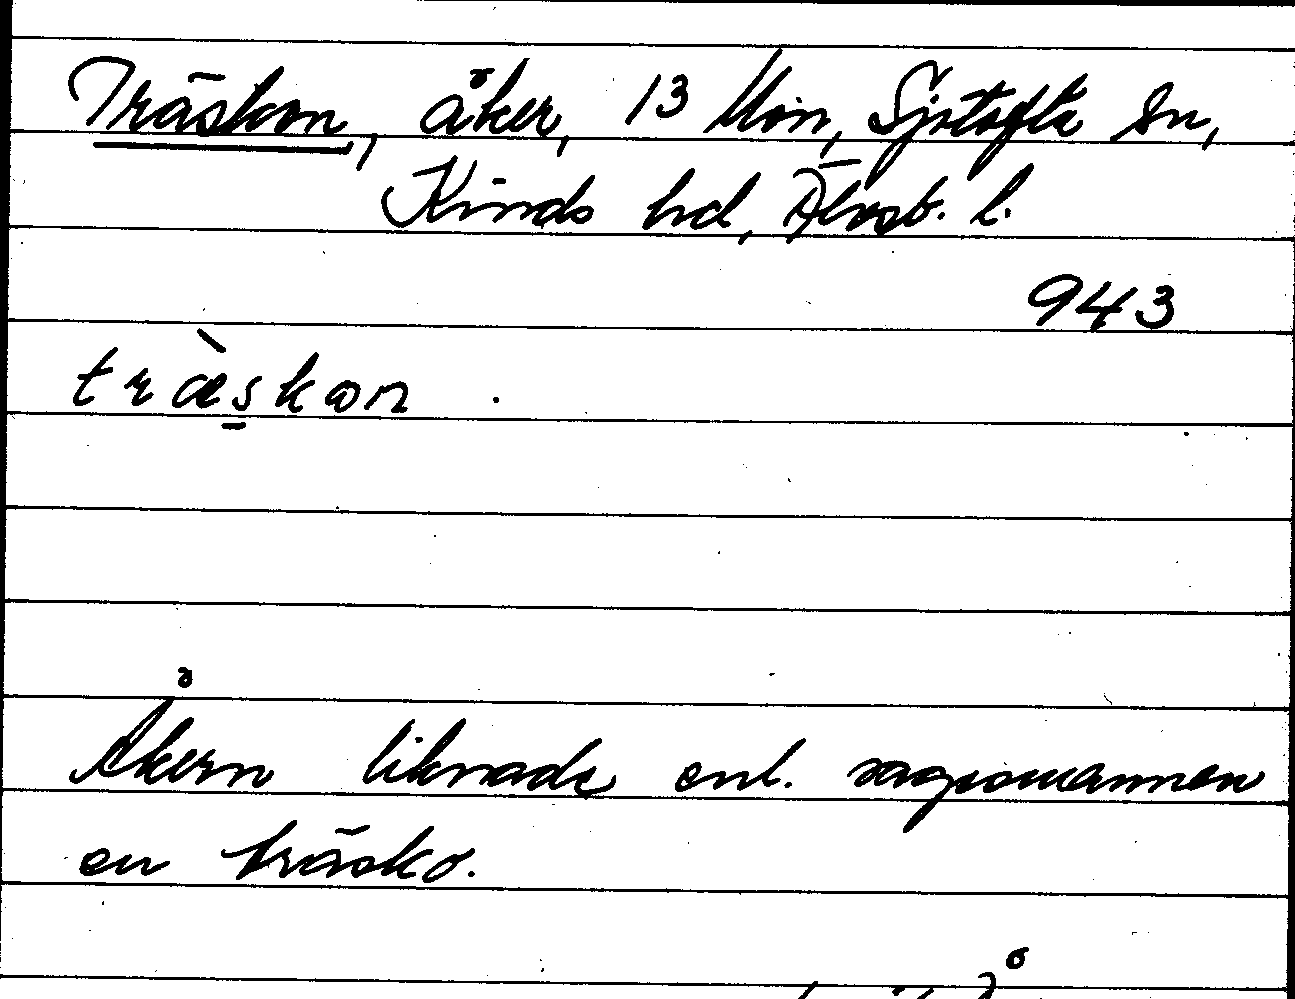 Träskon, åker, 13 Mon, Sjötofta sn,
Kinds hd, Älvsb. l.
943
træ̀s̱kωn .
Åkern liknade enl. sagesmannen
en träsko.